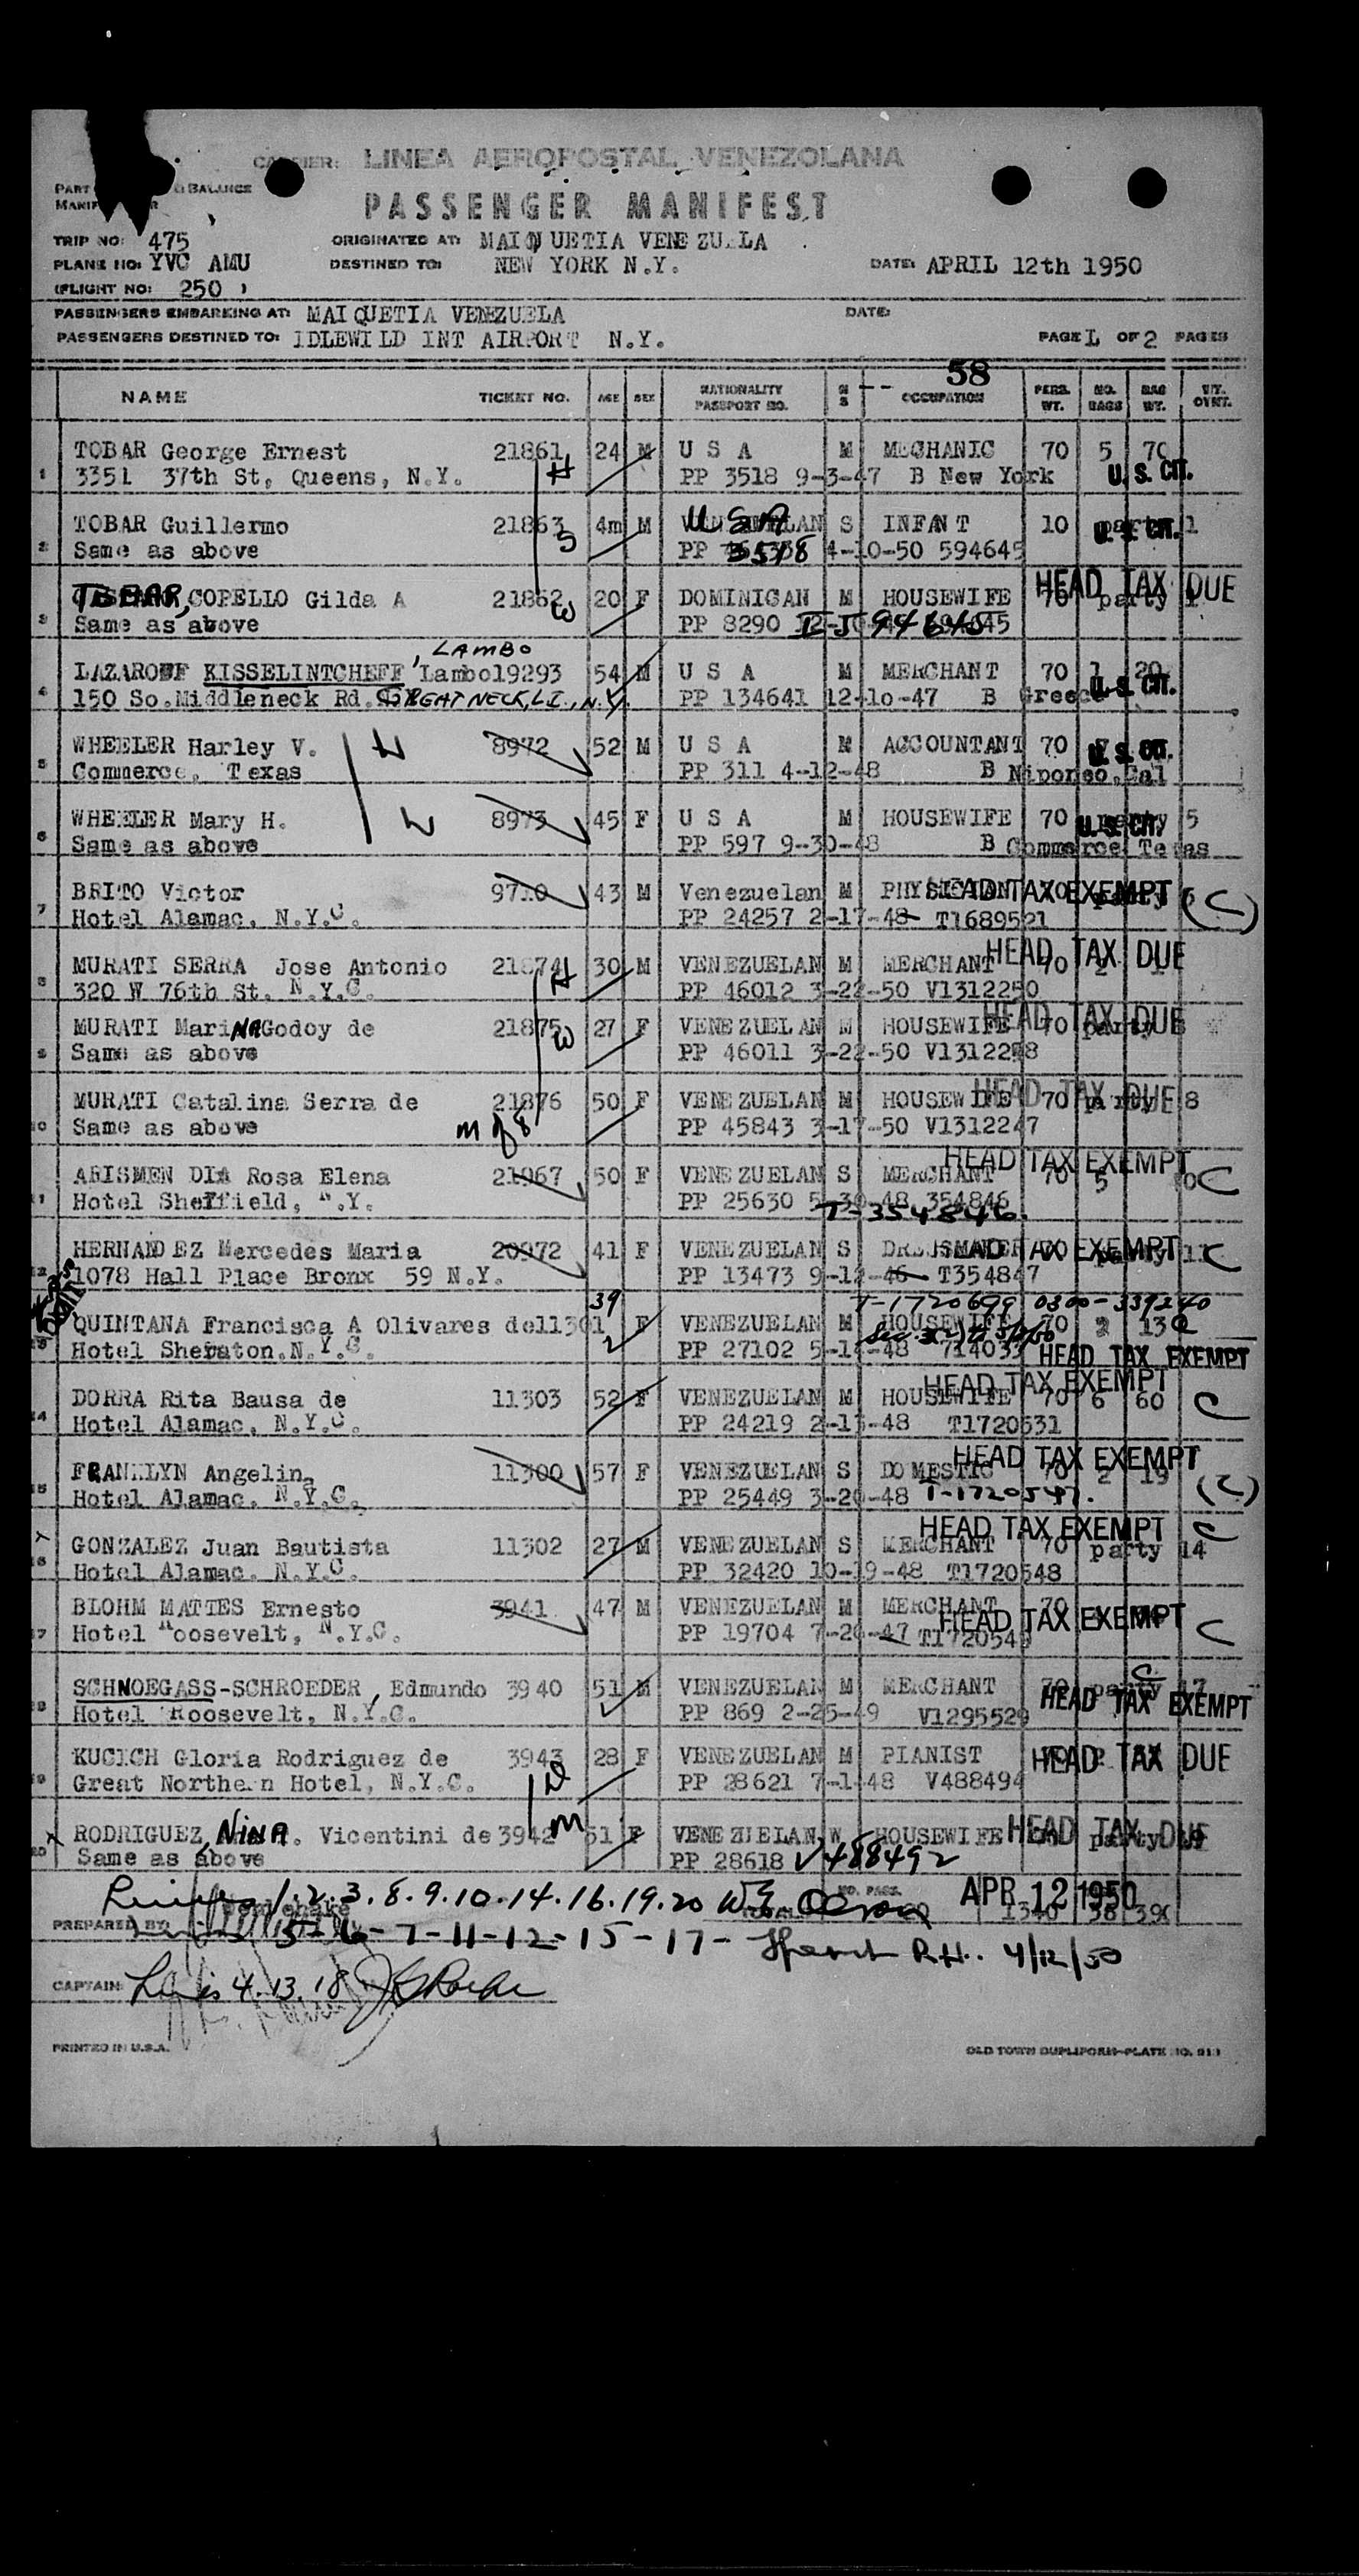 CARRIER: LINEA AEROPOSTAL VENEZOLANA
PART & BALANCE
MANIF R
PASSENGER MANIFEST
TRIP NO: 475 ORIGINATED AT: MAIQUETIA VENEZU LA
PLANE NO: YVC AMU DESTINED TO: NEW YORK N.Y. DATE: APRIL 12th 1950
(FLIGHT NO: 250 )
PASSENGERS EMBARKING AT: MAIQUETIA VENEZUELA DATE:
PASSENGERS DESTINED TO: IDLEWILD INT AIRPORT N.Y. PAGE 1 OF 2 PAGES
58
NAME TICKET NO. AGE SEX NATIONALITY PASSPORT NO. M S OCCUPATION PERS. WT. NO. BAGS BAG WT.
1 TOBAR George Ernest 21861 24 M U S A M MECHANIC 70 5 70
3351 37th St, Queens, N.Y. H PP 3518 9-3-47 B New York U.S. CIT.
2 TOBAR Guillermo 21863 4m M USA S INFANT 10 party 1
Same as above S PP 3518 4-10-50 594645 U.S. CIT.
3 TOBAR, COPELLO Gilda A 21862 20 F DOMINICAN M HOUSEWIFE 70 party 1 HEAD TAX DUE
Same as above W PP 8290
, LAMBO
4 LAZAROFF KISSELINTCHEFF Lambo 19293 54 M U S A M MERCHANT 70 1 20
150 So. Middleneck Rd. GREAT NECK, L.I., N.Y. PP 134641 12-10-47 B Greece U.S. CIT.
5 WHEELER Harley V. H 8972 52 M U S A M ACCOUNTANT 70 U.S. CIT.
Commerce, Texas PP 311 4-12-48 B Niponso, Cal
6 WHEELER Mary H. W 8973 45 F U S A M HOUSEWIFE 70 party 5 U.S. CIT.
Same as above PP 597 9-30-48 B Commerce Texas
7 BRITO Victor 9710 43 M Venezuelan M PHYSICIAN HEAD TAX EXEMPT (C)
Hotel Alamac, N.Y.C. PP 24257 2-17-48 T1689521
8 MURATI SERRA Jose Antonio 21874 H 30 M VENEZUELAN M MERCHANT 70 2 HEAD TAX DUE
320 W 76th St. N.Y.C. PP 46012 3-22-50 V1312250
9 MURATI MariNA Godoy de 21875 W 27 F VENEZUELAN M HOUSEWIFE 70 party 8 HEAD TAX DUE
Same as above PP 46011 3-22-50 V1312248
10 MURATI Catalina Serra de 21876 50 F VENEZUELAN M HOUSEWIFE 70 party 8 HEAD TAX DUE
Same as above M of 8 PP 45843 3-17-50 V1312247
11 ABISMEN DIA Rosa Elena 21967 50 F VENEZUELAN S MERCHANT 70 5 HEAD TAX EXEMPT C
Hotel Sheffield, N.Y. PP 25630 5-30-48 354846
T-354846.
12 HERNANDEZ Mercedes Maria 20972 41 F VENEZUELAN S DRESSMAKER party 11 HEAD TAX EXEMPT C
1078 Hall Place Bronx 59 N.Y. PP 13473 9-12-46 T354847
39 T-1720699 0300-339240
13 QUINTANA Francisca A Olivares de 11301 F VENEZUELAN M HOUSEWIFE 70 2 13
Hotel Sheraton. N.Y.C. PP 27102 5-14-48 714033 HEAD TAX EXEMPT
14 DORRA Rita Bausa de 11303 52 F VENEZUELAN M HOUSEWIFE 70 6 60 HEAD TAX EXEMPT C
Hotel Alamac, N.Y.C. PP 24219 2-13-48 T1720531
15 FRANKLYN Angelina 11300 57 F VENEZUELAN S DOMESTIC 70 2 19 HEAD TAX EXEMPT (C)
Hotel Alamac. N.Y.C. PP 25449 3-20-48 T-1720547.
16 GONZALEZ Juan Bautista 11302 27 M VENEZUELAN S MERCHANT 70 party 14 HEAD TAX EXEMPT C
Hotel Alamac. N.Y.C. PP 32420 10-19-48 T1720548
17 BLOHM MATTES Ernesto 3941 47 M VENEZUELAN M MERCHANT 70 HEAD TAX EXEMPT C
Hotel Roosevelt, N.Y.C. PP 19704 7-26-47 T172054
18 SCHNOEGASS-SCHROEDER, Edmundo 3940 51 M VENEZUELAN M MERCHANT 70 party 17 C
Hotel Roosevelt, N.Y.C. PP 869 2-25-49 V1295529 HEAD TAX EXEMPT
19 KUCICH Gloria Rodriguez de 3943 28 F VENEZUELAN M PIANIST HEAD TAX DUE
Great Northern Hotel, N.Y.C. D PP 28621 7-1-48 V488494
20 RODRIGUEZ, NINA. Vicentini de 3942 M 51 F VENEZUELAN W HOUSEWIFE party HEAD TAX DUE
Same as above PP 28618 V488492
1. 2. 3. 8. 9. 10. 14. 16. 19. 20 NO. PASS. APR 12 1950
1340 38 390
PREPARED BY: 5-6-7-11-12-15-17- 4/12/50
CAPTAIN: 4. 13. 18
PRINTED IN U.S.A. OLD TOWN DUPLIFORM-PLATE NO. 911